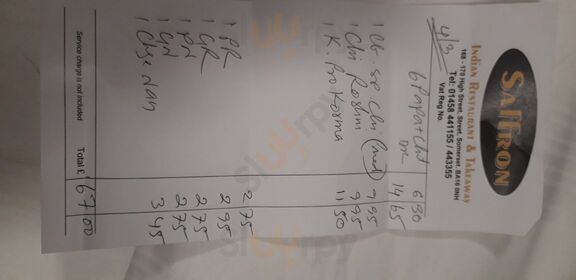 SAFFRON
INDIAN RESTAURANT & TAKEAWAY
168 - 170 High Street, Street, Somerset, BA16 0NH
Tel: 01458 441155 / 443355
Vat Reg No.
4/3
6 Papa + Cht 6 30
14 65
1 Ch. sp Chi (med) 9 95
1 Chi Roshni 9 95
1 K. Pro Korma 11 50
1 PR 2 75
1 GR 2 95
1 PN 2 75
1 GN 2 75
1 Chse Nan 3 45
Service charge is not included Total £ 67 00